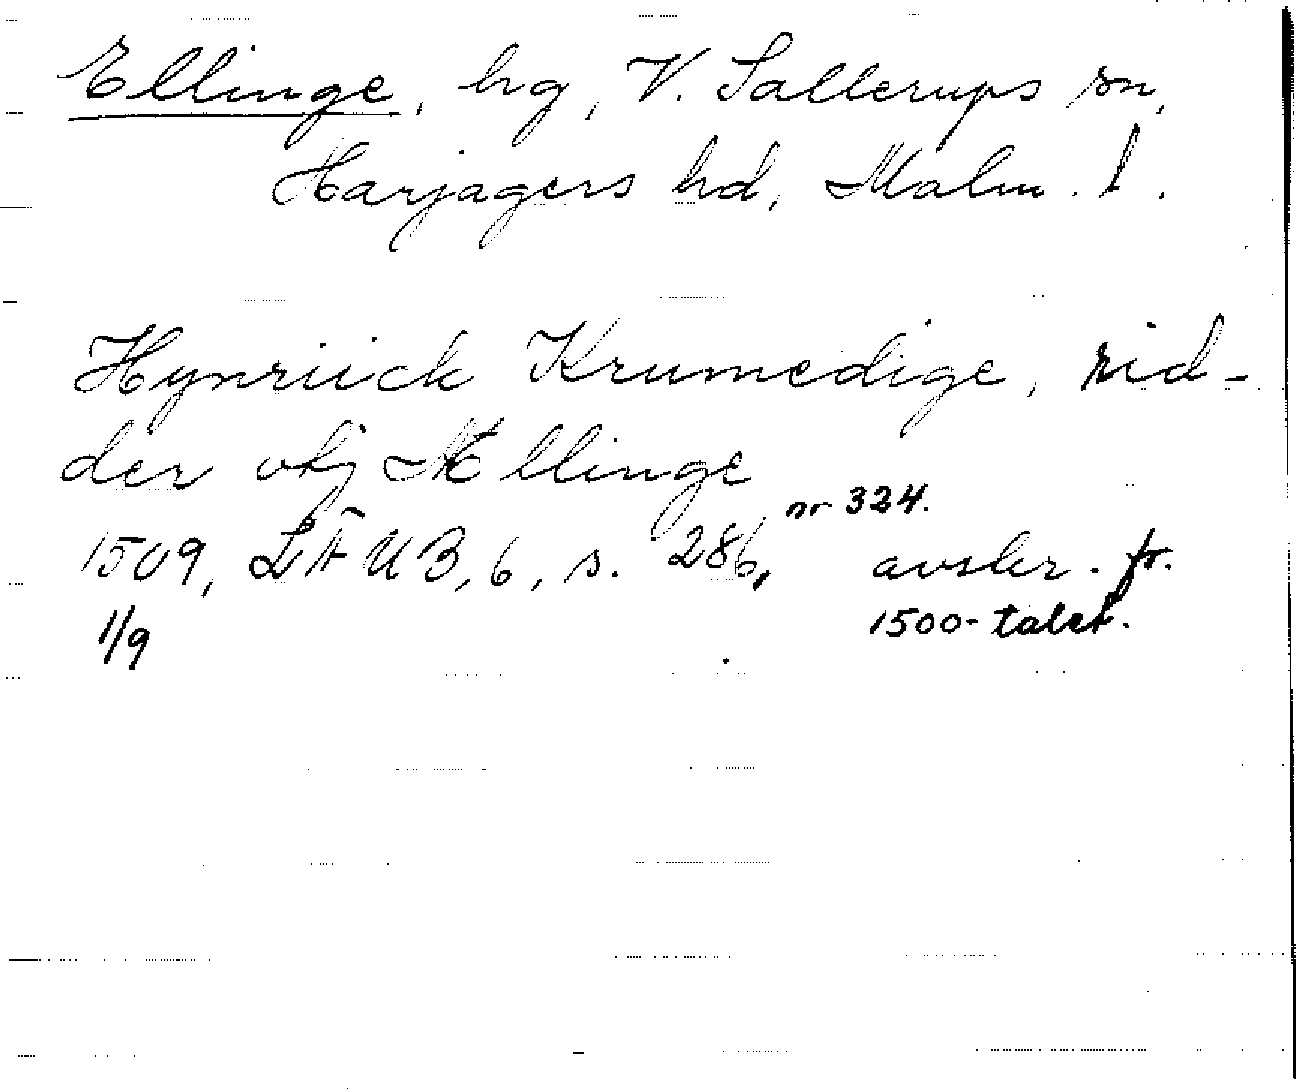 Ellinge, hg, V. Sallerups sn,
Harjagers hd, Malm. l.
Hynriick Krumedige, rid-
der vtij Ællinge
nr 324.
1509, LÄUB, 6, s. 286, avskr. fr.
1/9 1500-talet.